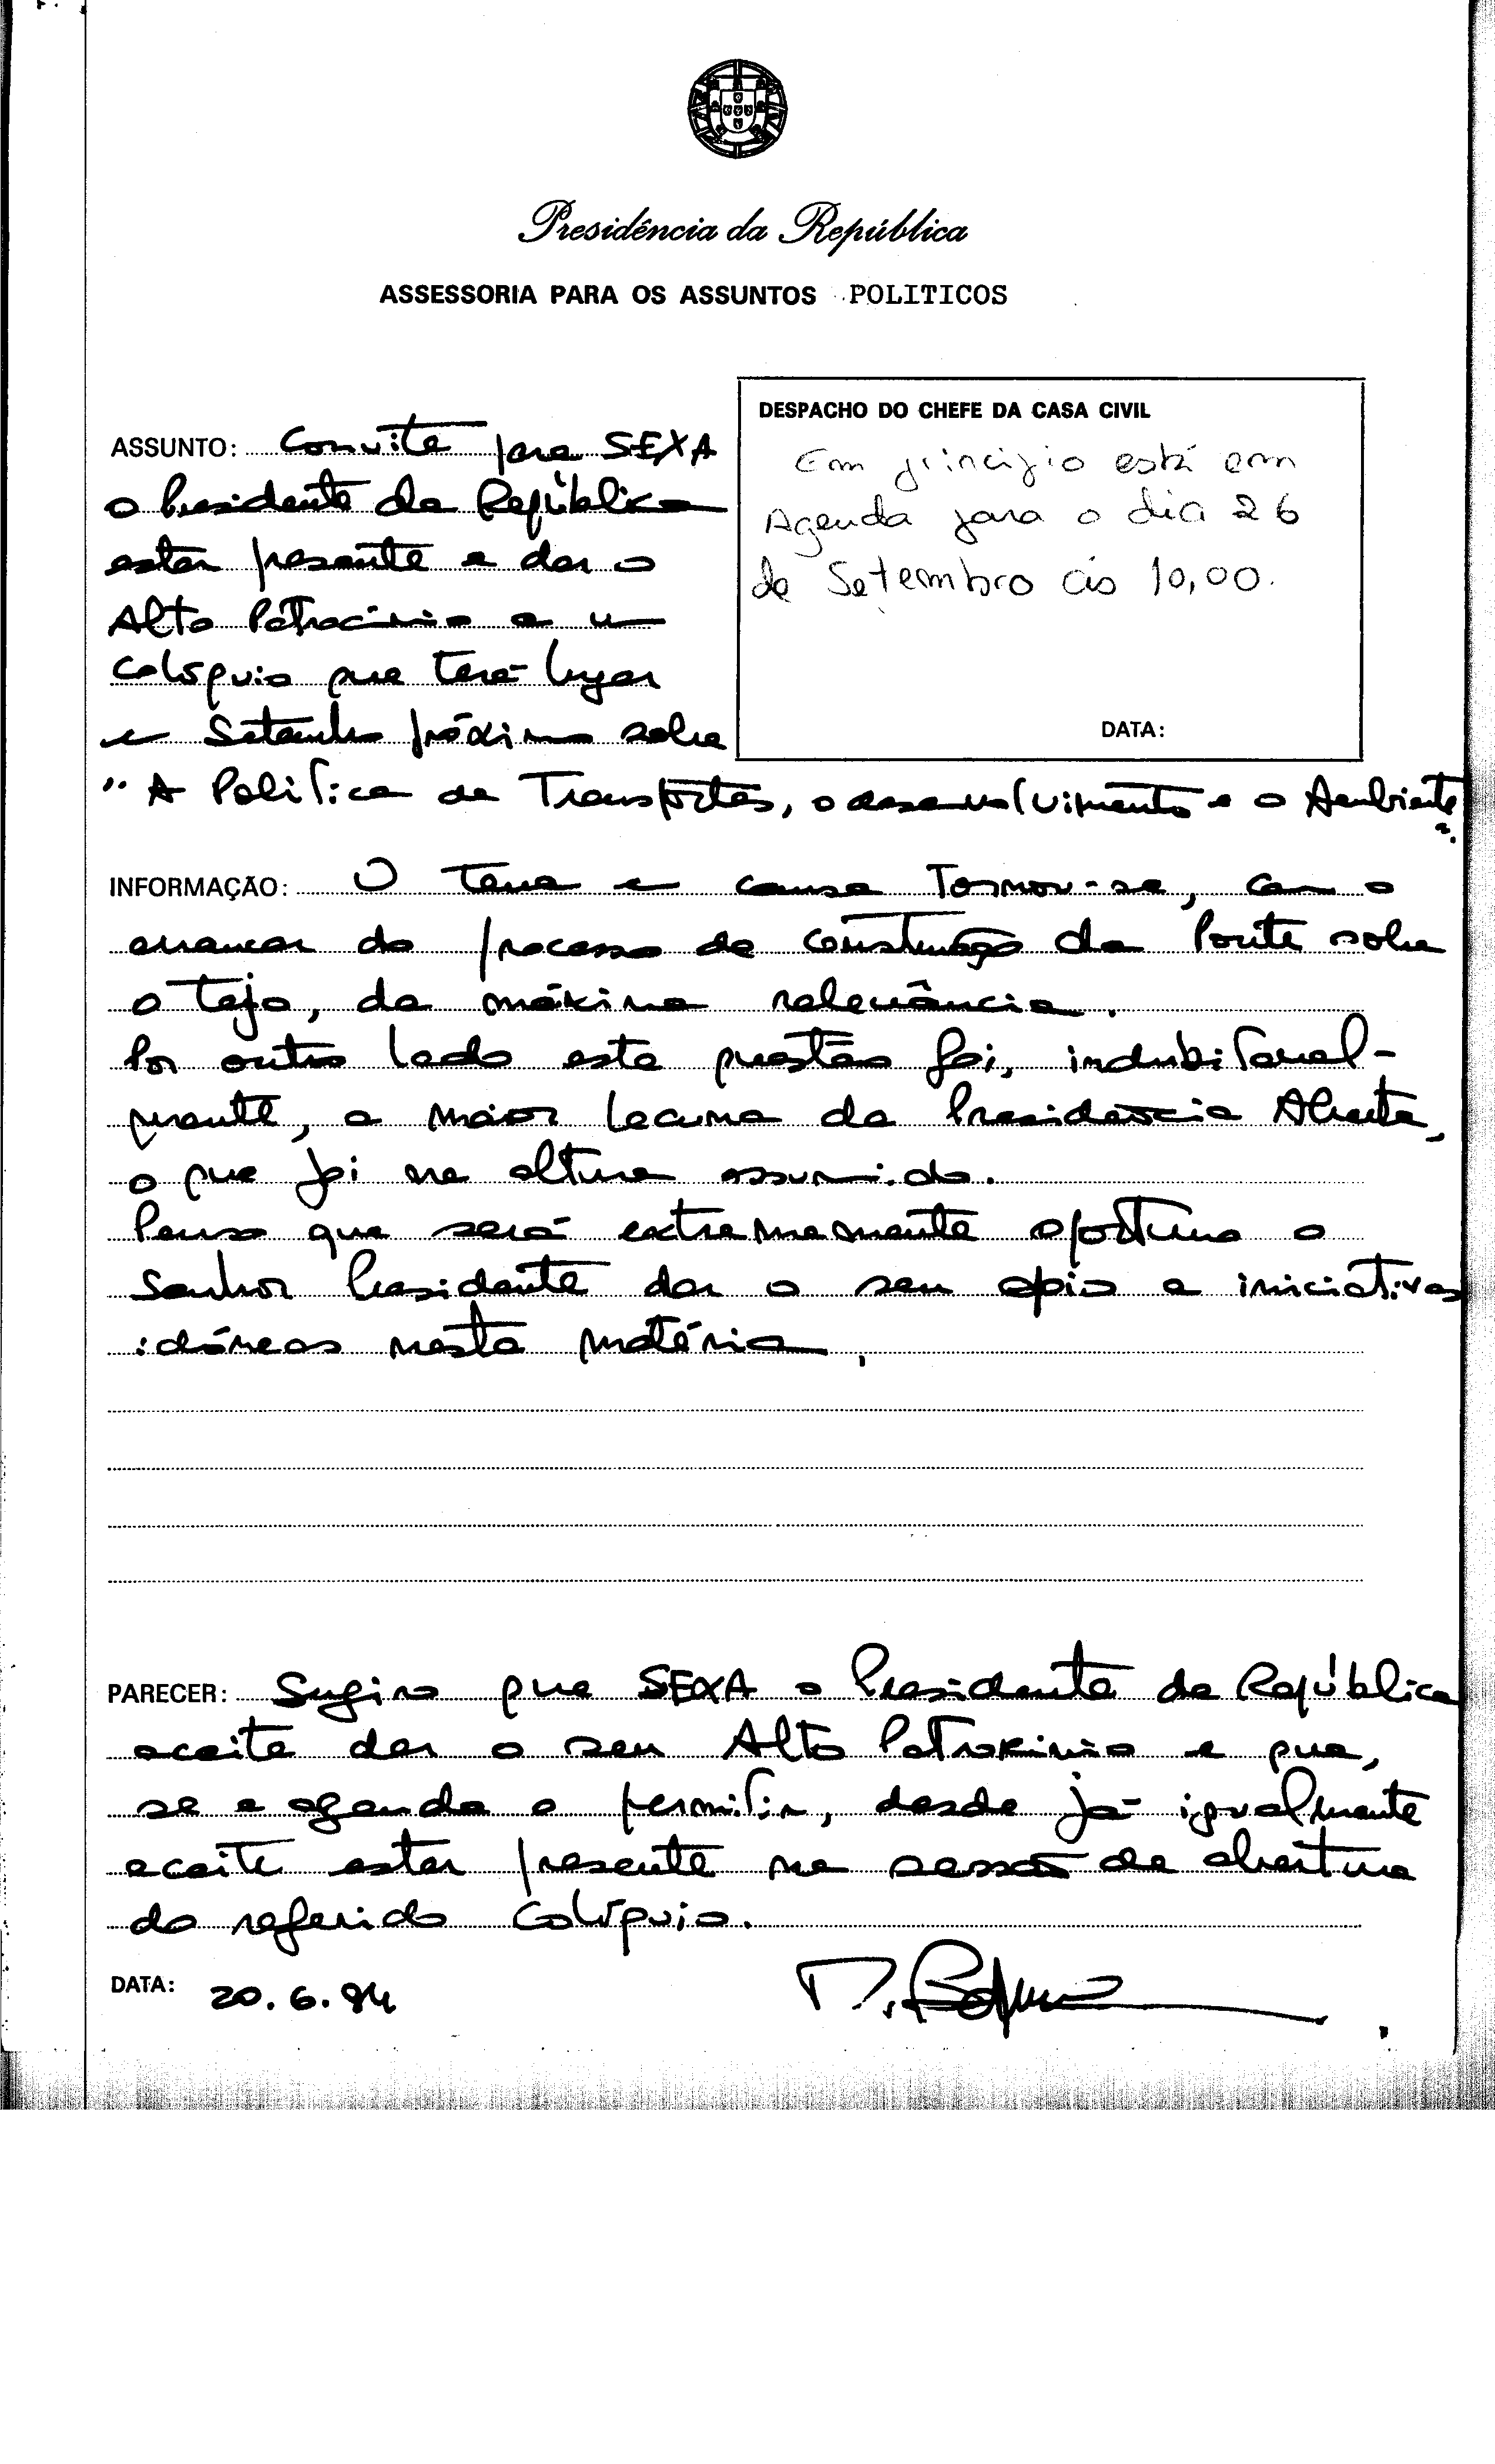 Presidência da República
ASSESSORIA PARA OS ASSUNTOS POLITICOS
DESPACHO DO CHEFE DA CASA CIVIL
Em princípio está em
Agenda para o dia 26
de Setembro às 10,00.
DATA:
ASSUNTO: Convite para SEXA
o Presidente da República
estar presente e dar o
Alto Patrocínio a um
colóquio que terá lugar
em Setembro próximo sobre
"A Política de Transportes, o desenvolvimento e o Ambiente
".
INFORMAÇÃO: O tema em causa tornou-se, com o
arrancar do processo de construção da Ponte sobre
o Tejo, da máxima relevância.
Por outro lado esta questão foi, indubitavel-
mente, a maior lacuna da Presidência Aberta,
o que foi na altura assumido.
Penso que será extremamente oportuno o
Senhor Presidente dar o seu apoio a iniciativas
idóneas nesta matéria.
PARECER: Sugiro que SEXA o Presidente da República
aceite dar o seu Alto Patrocínio e que,
se a agenda o permitir, desde já igualmente
aceite estar presente na sessão de abertura
do referido colóquio.
DATA: 20.6.94